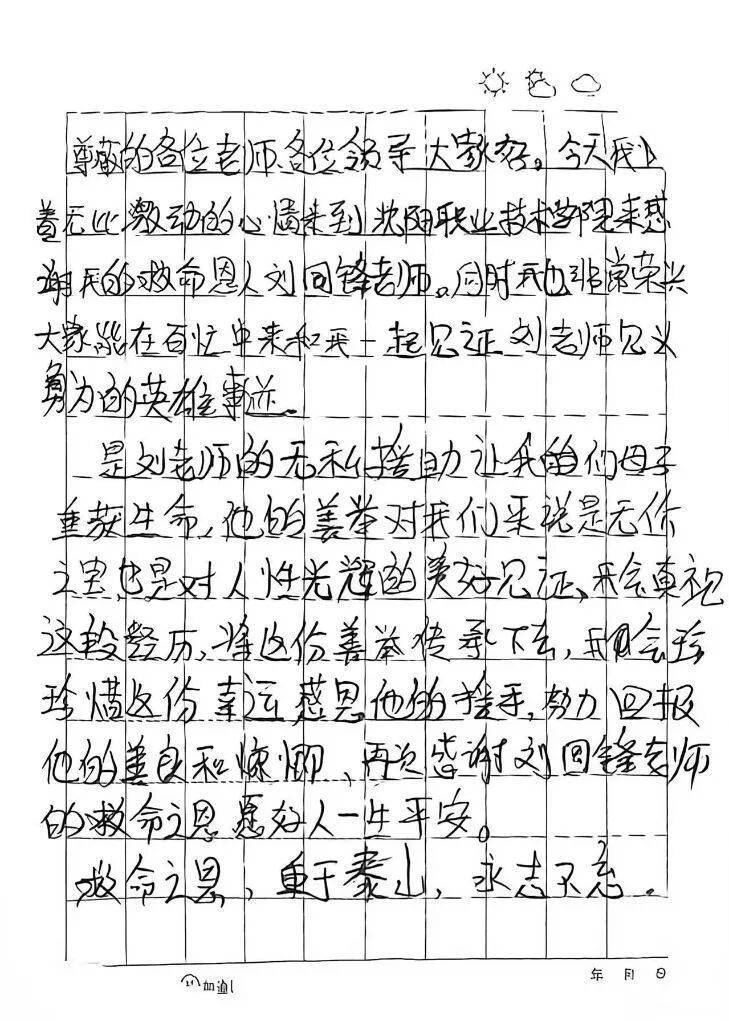 尊敬的各位老师各位领导大家好。今天我
着无比激动的心情来到沈阳职业技术学院来感
谢我的救命恩人刘回锋老师。同时我也非常荣兴
大家能在百忙中来和我一起见证刘老师见义
勇为的英雄事迹。
是刘老师的无私援助让我的们母子
重获生命，他的善举对我们来说是无价
之宝也是对人性光辉的美好见证、我会真视
这段经历，将这份善举传承下去，我会珍
珍惜这份幸运感恩他的援手，努力回报
他的善良和慷慨、再次感谢刘回锋老师
的救命之恩愿好人一生平安。
救命之恩，重于泰山，永志不忘．
加油！
年 月 日